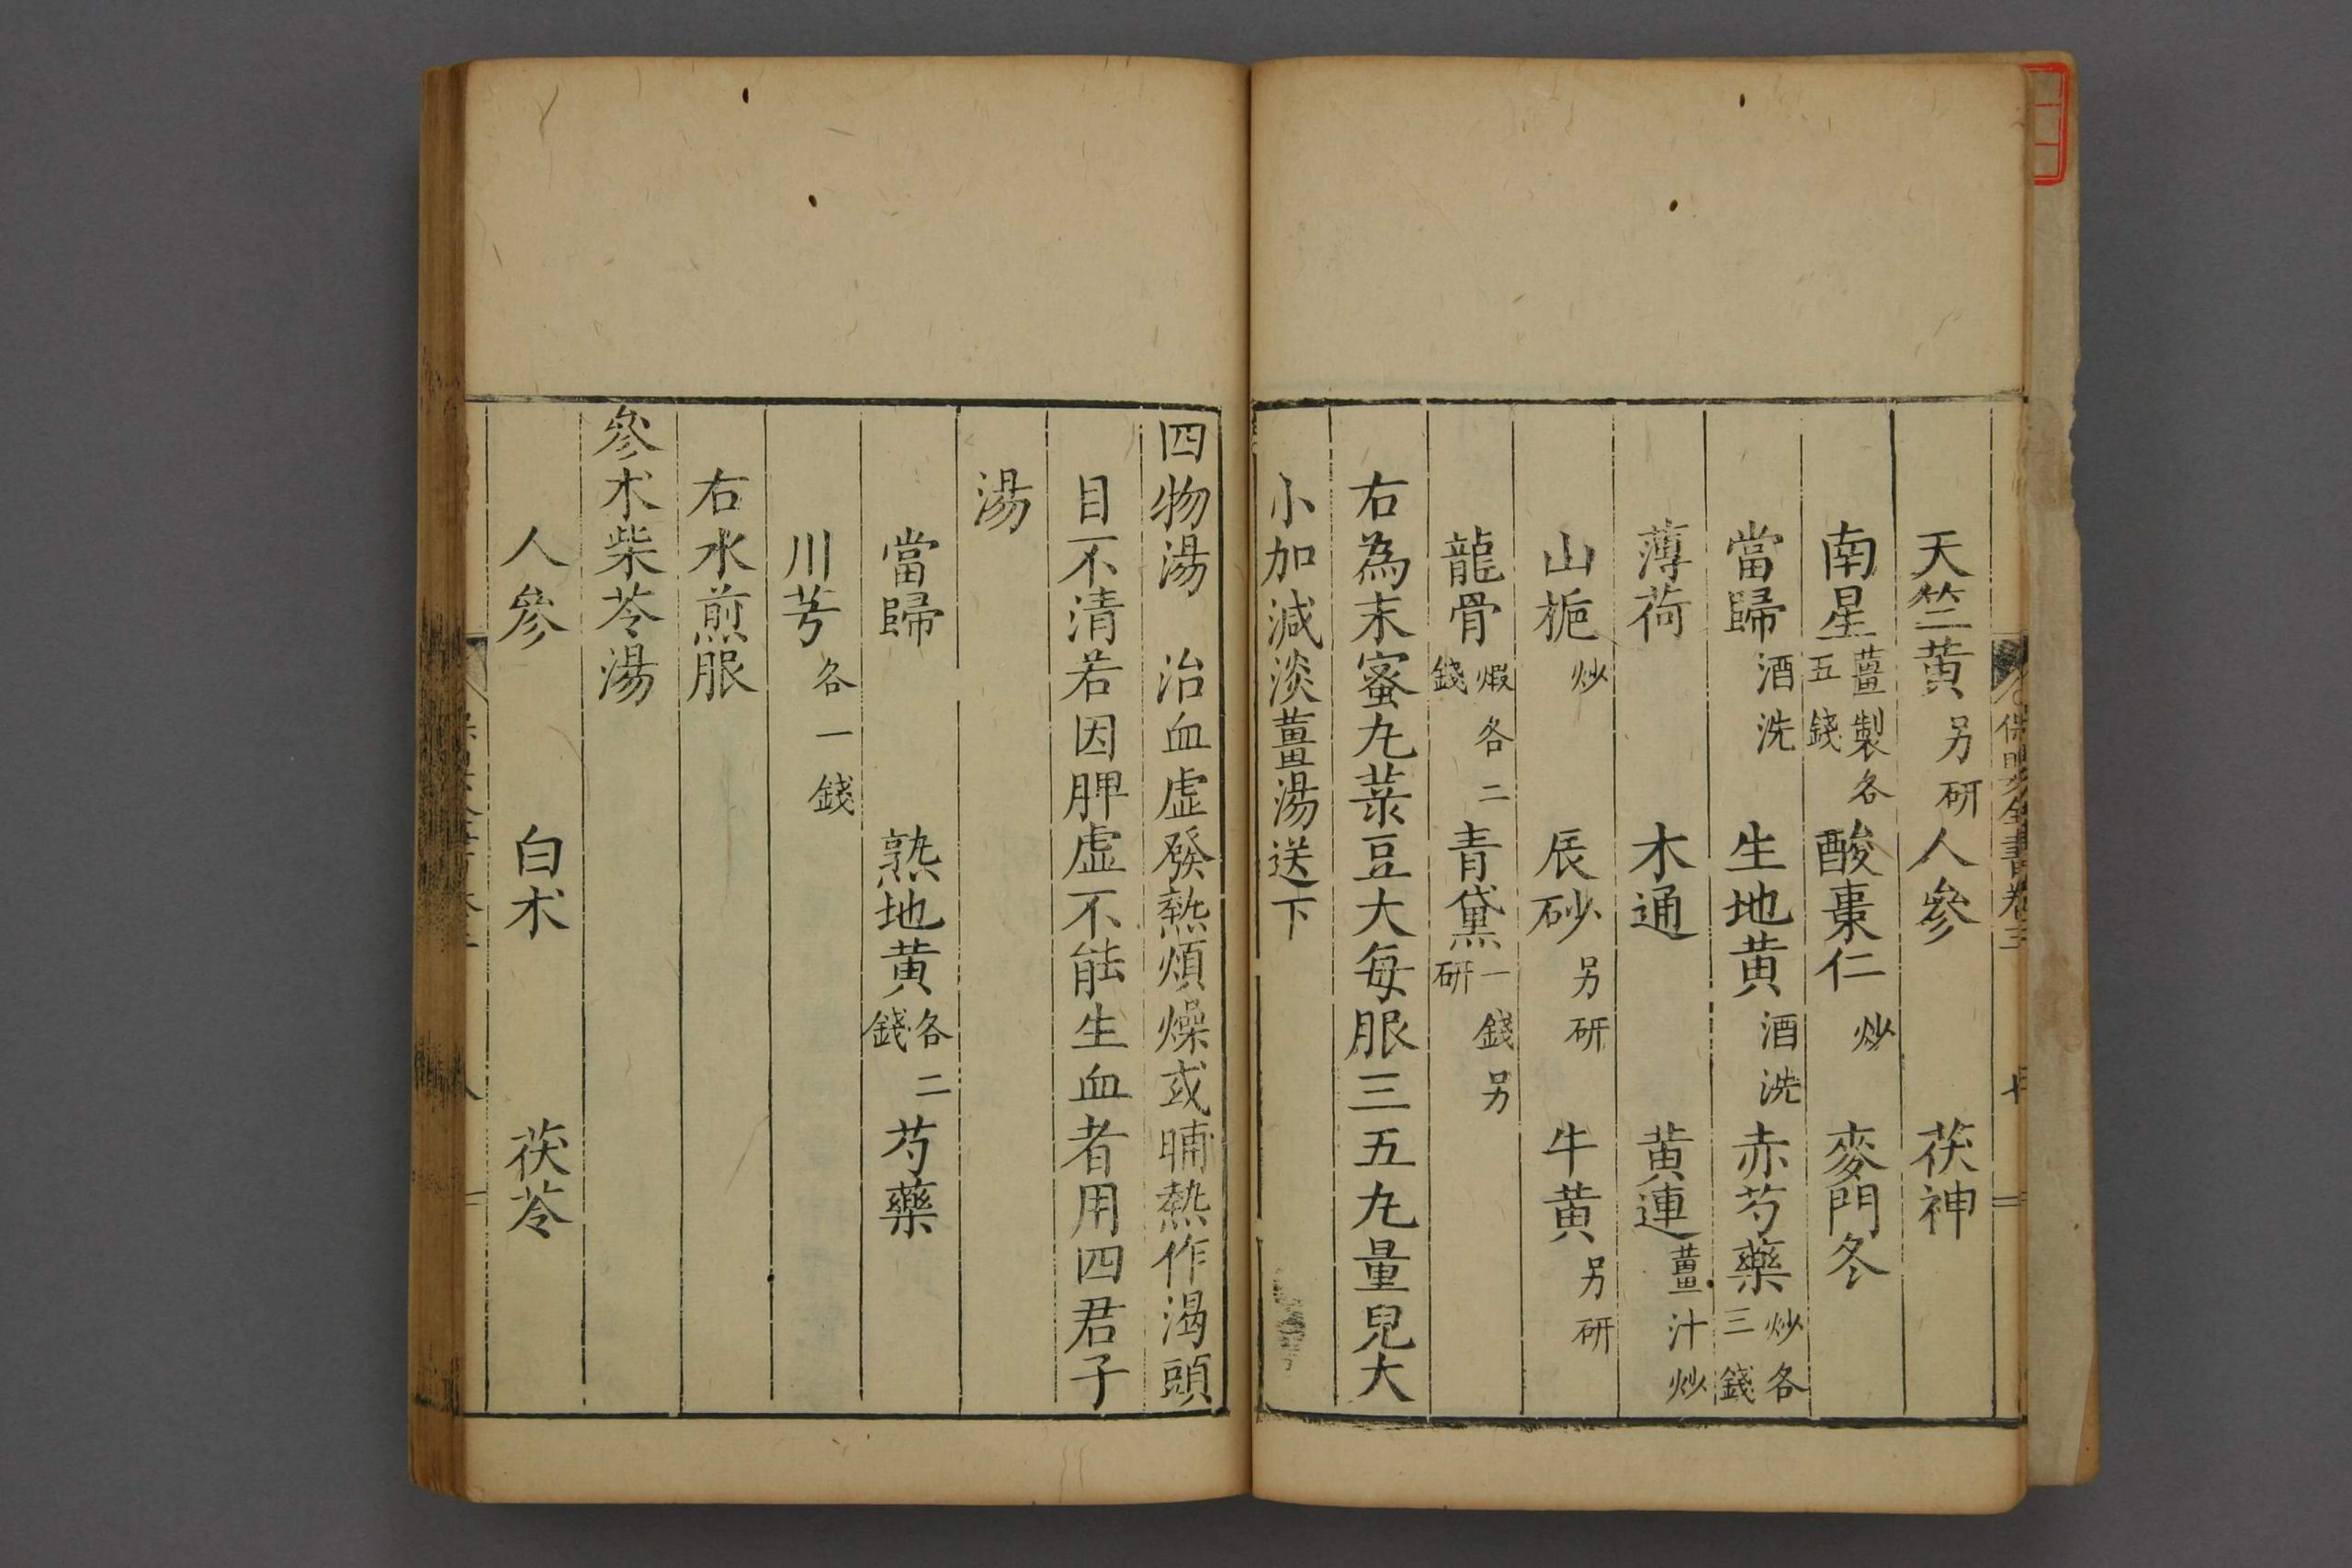 保嬰全書卷三 七
天竺黃另研 人參 茯神
南星薑製各五錢 酸棗仁炒 麥門冬
當歸酒洗 生地黃酒洗 赤芍藥炒各三錢
薄荷 木通 黃連薑汁炒
山梔炒 辰砂另研 牛黃另研
龍骨煅各二錢 青黛一錢另研
右為末蜜丸菉豆大每服三五丸量兒大
小加減淡薑湯送下
四物湯 治血虛發熱煩燥或晡熱作渴頭
目不清若因脾虛不能生血者用四君子
湯
當歸 熟地黃各二錢 芍藥
川芎各一錢
右水煎服
參朮柴苓湯
人參 白朮 茯苓